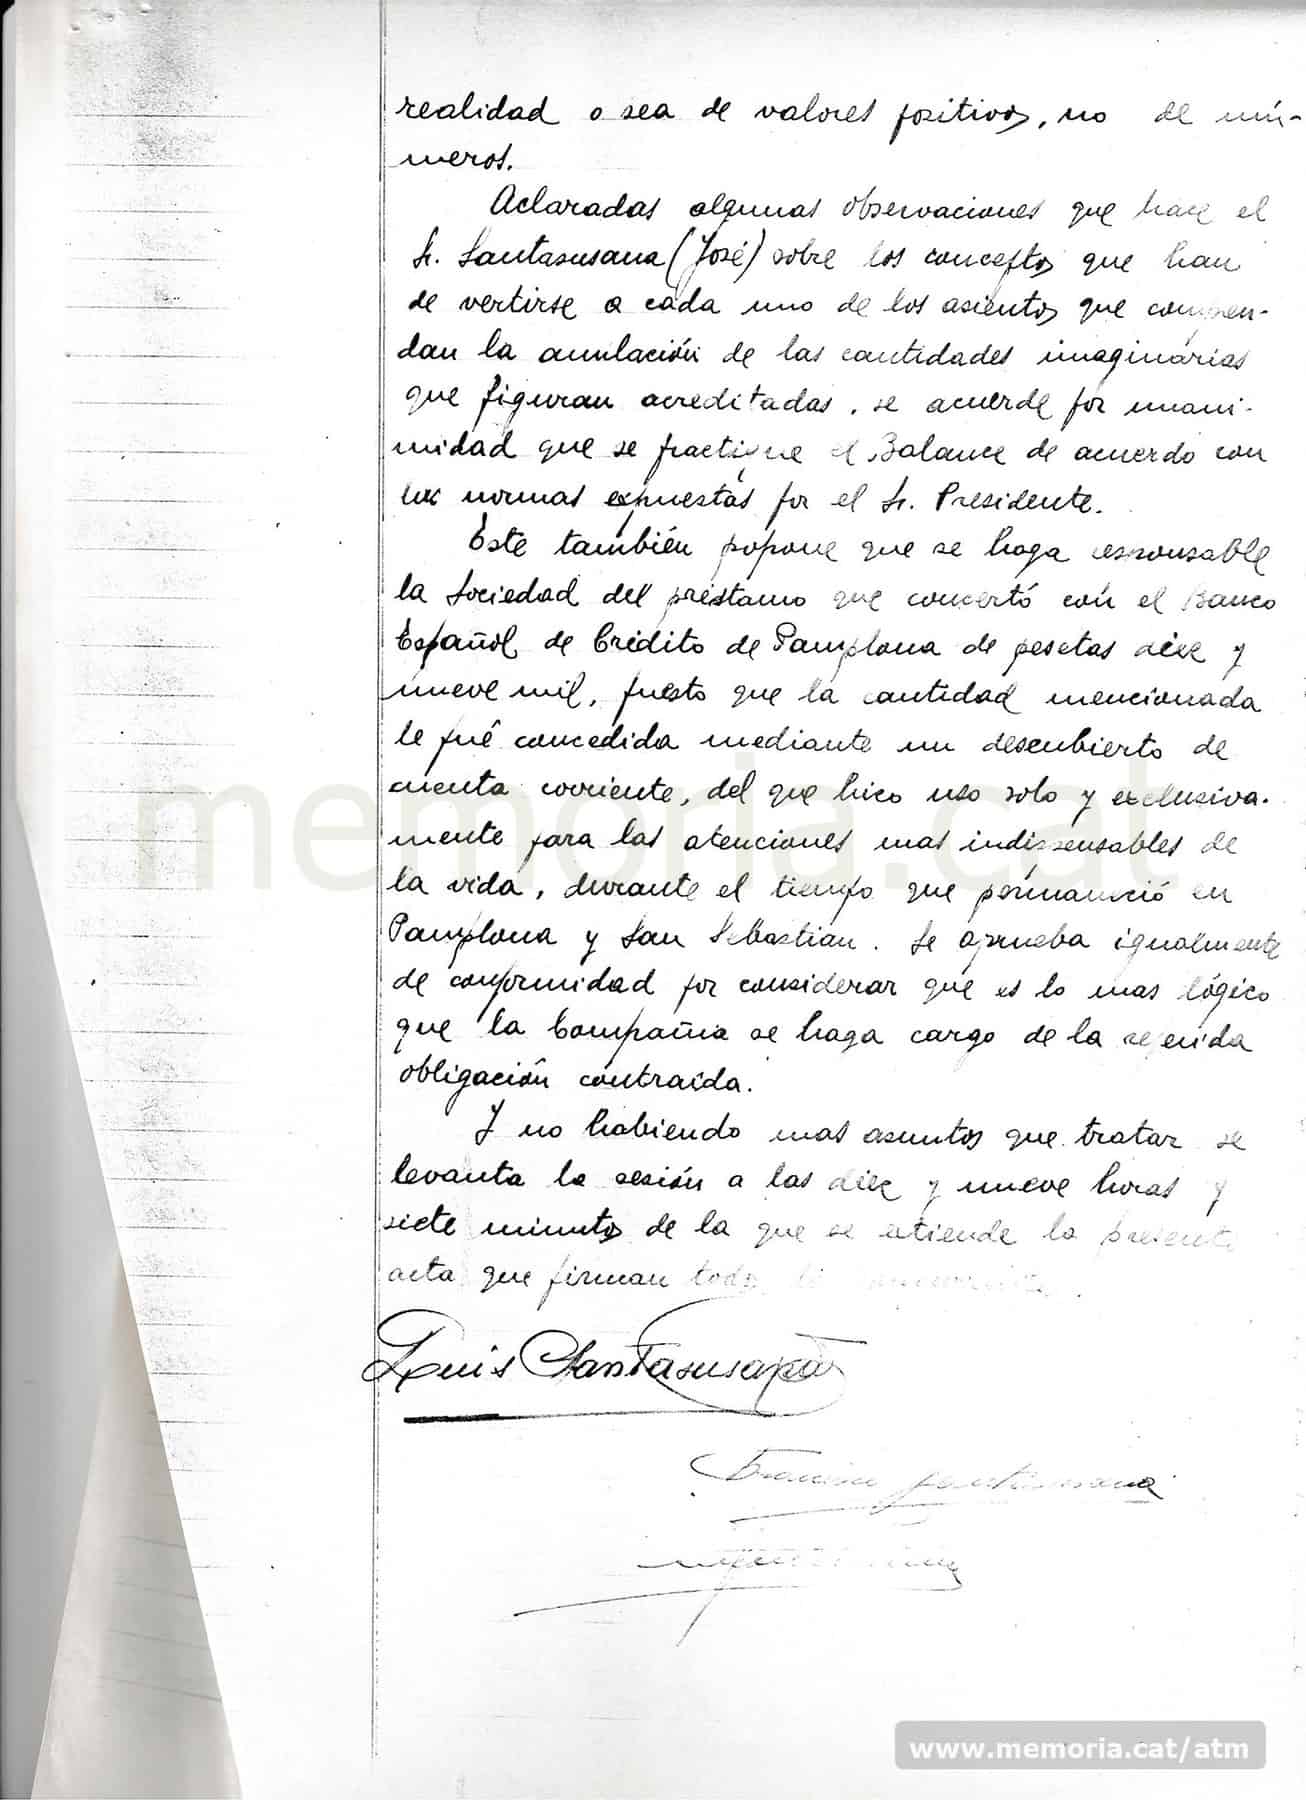 realidad o sea de valores positivos, no de nú-
meros.
Aclaradas algunas observaciones que hace el
Sr. Santasusana (José) sobre los conceptos que han
de vertirse a cada uno de los asientos que compren-
dan la anulación de las cantidades imaginarias
que figuran acreditadas, se acuerde por unani-
midad que se practique el Balance de acuerdo con
las normas expuestas por el Sr. Presidente.
Este también propone que se haga responsable
la Sociedad del préstamo que concertó con el Banco
Español de Crédito de Pamplona de pesetas diez y
nueve mil, puesto que la cantidad mencionada
le fué concedida mediante un descubierto de
cuenta corriente, del que hico uso solo y exclusiva-
mente para las atenciones mas indispensables de
la vida, durante el tiempo que permaneció en
Pamplona y San Sebastian. Se aprueba igualmente
de conformidad por considerar que es lo mas lógico
que la Compañia se haga cargo de la referida
obligación contraida.
Y no habiendo mas asuntos que tratar se
levanta la sesión a las diez y nueve horas y
siete minutos de la que se extiende la presente
acta que firman todos
Luis Santasusana
Francisco Santasusana
memoria.cat
www.memoria.cat/atm